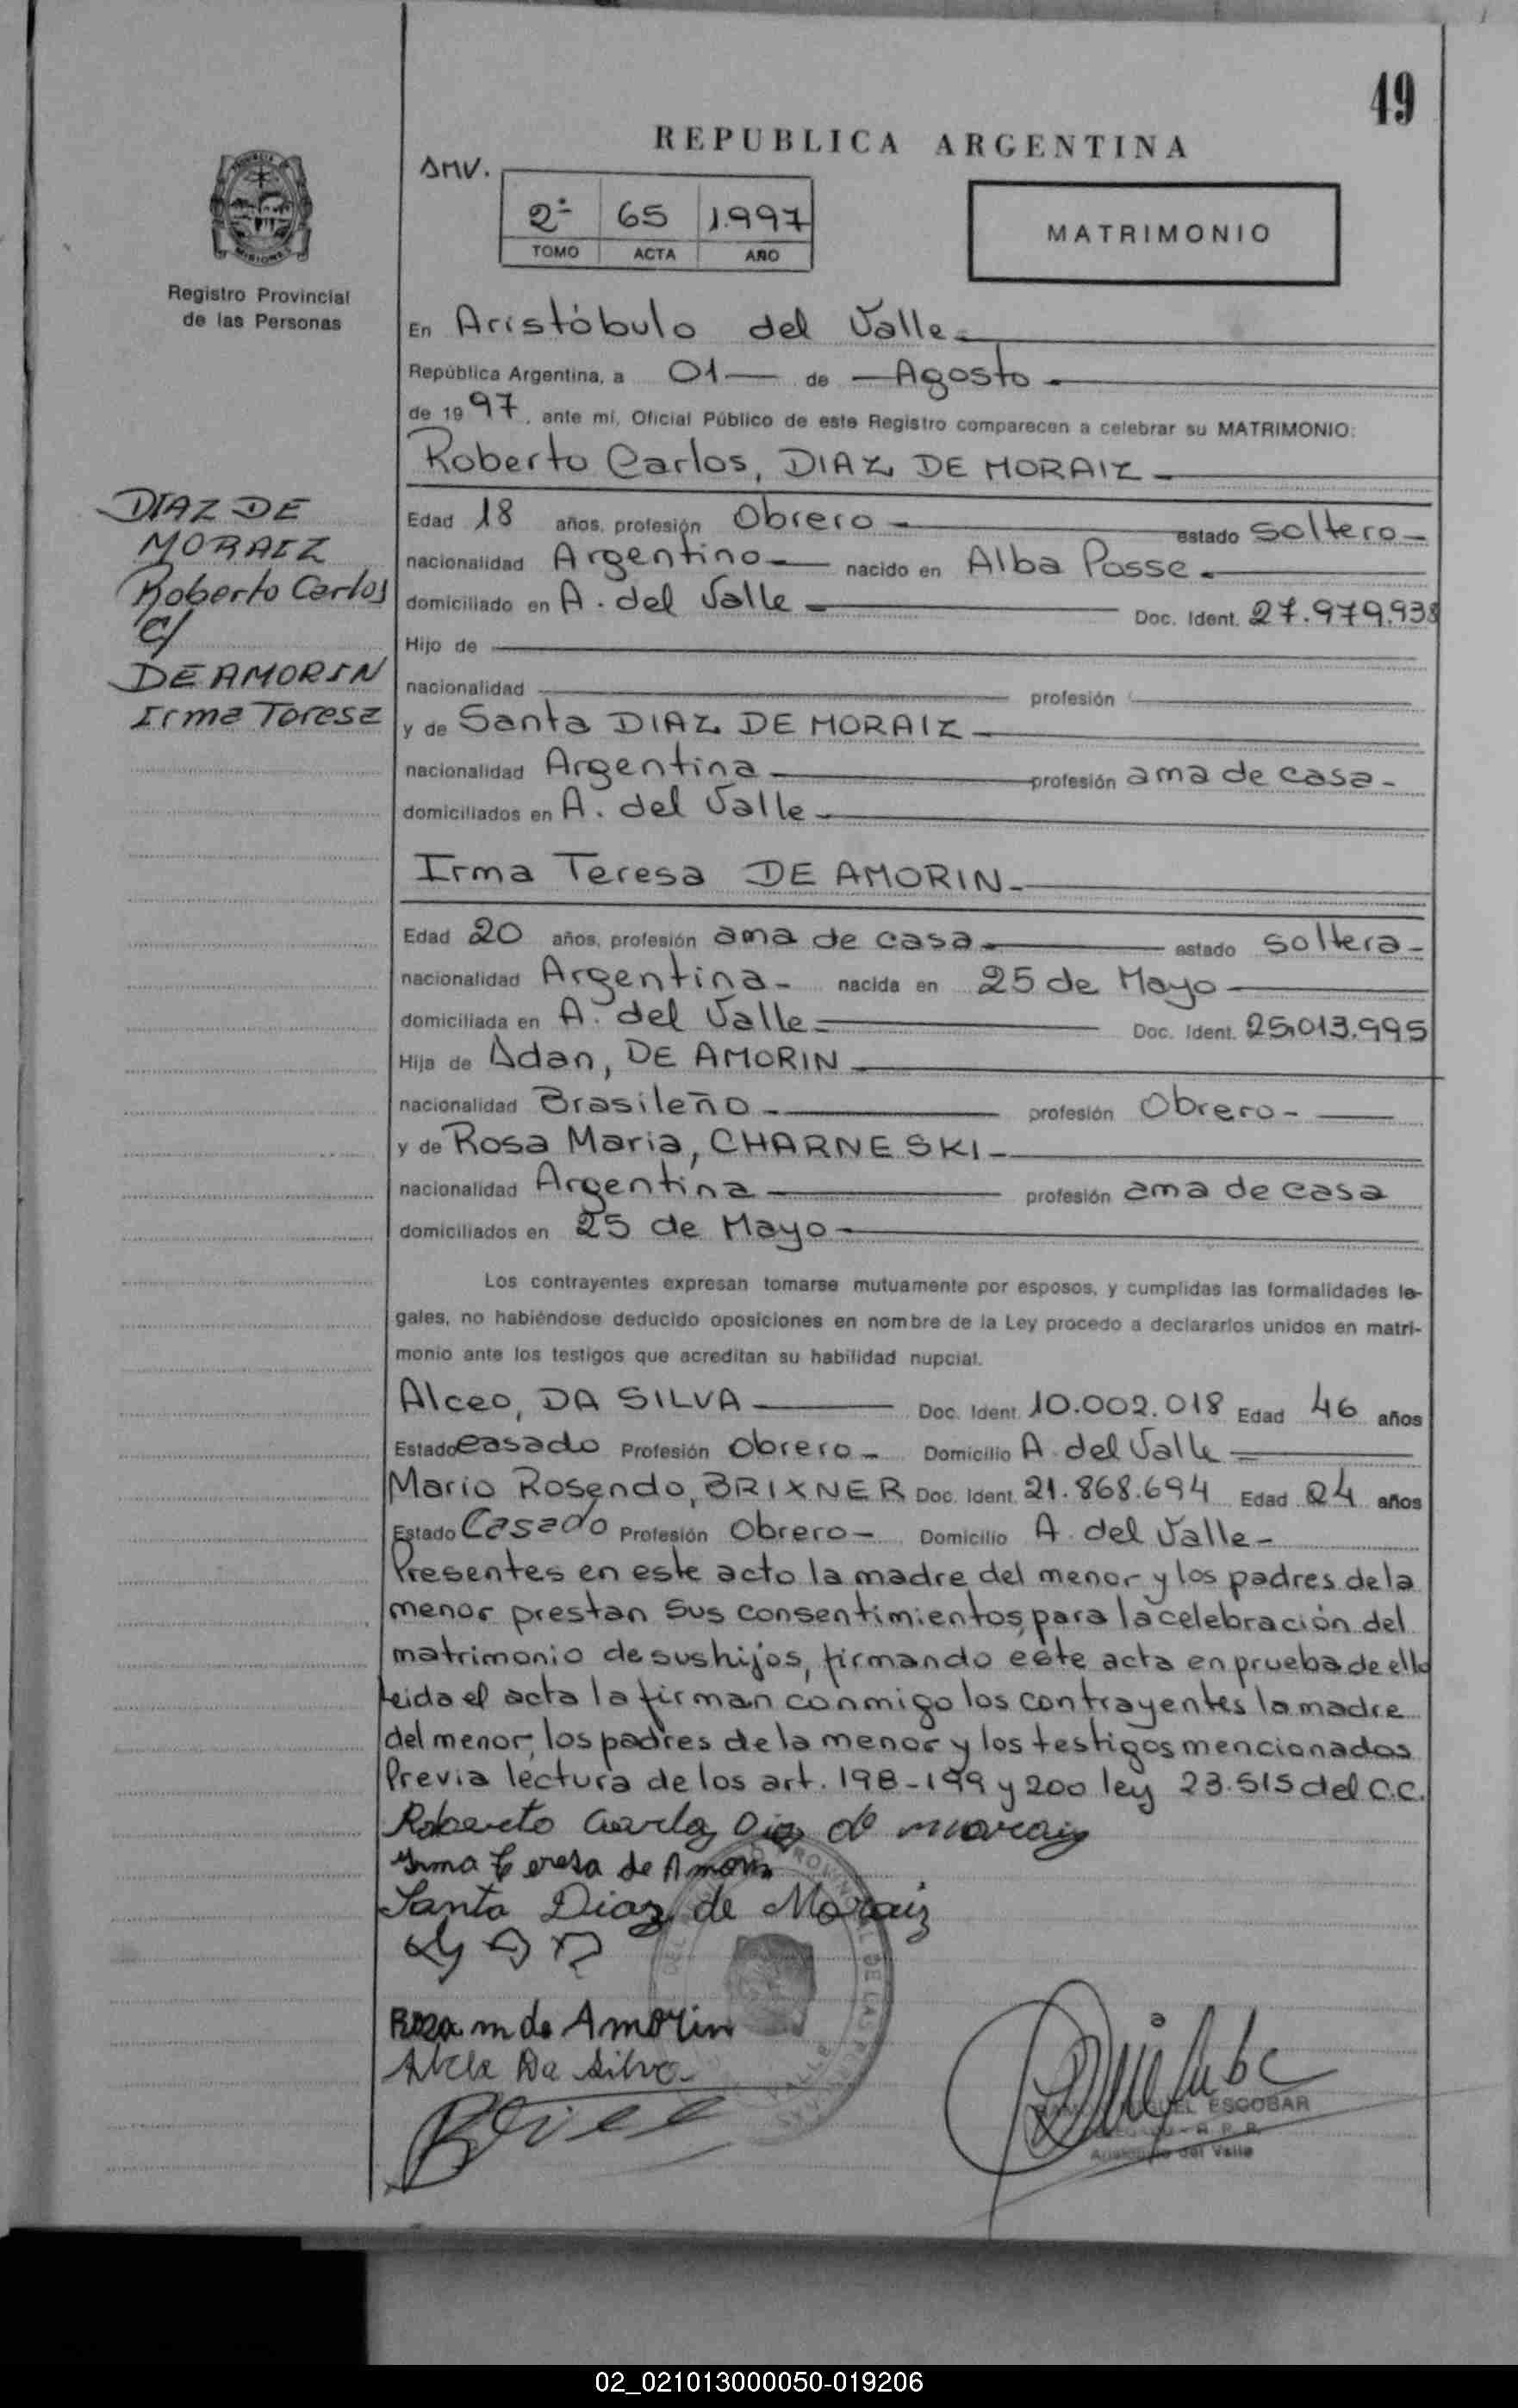 49
REPUBLICA ARGENTINA
SMV.
2º 65 1.997
TOMO ACTA AÑO
MATRIMONIO
MISIONES
Registro Provincial
de las Personas
En Aristóbulo del Valle
República Argentina, a 01 de Agosto
de 1997, ante mí, Oficial Público de este Registro comparecen a celebrar su MATRIMONIO:
Roberto Carlos, DIAZ DE MORAIZ
DIAZ DE
MORAIZ
Roberto Carlos
c/
DE AMORIN
Irma Teresa
Edad 18 años, profesión Obrero estado soltero
nacionalidad Argentino nacido en Alba Posse
domiciliado en A. del Valle Doc. Ident. 27.979.938
Hijo de
nacionalidad profesión
y de Santa DIAZ DE MORAIZ
nacionalidad Argentina profesión ama de casa
domiciliados en A. del Valle
Irma Teresa DE AMORIN
Edad 20 años, profesión ama de casa estado soltera
nacionalidad Argentina nacida en 25 de Mayo
domiciliada en A. del Valle Doc. Ident. 25.013.995
Hija de Adan, DE AMORIN
nacionalidad Brasileño profesión Obrero
y de Rosa Maria, CHARNESKI
nacionalidad Argentina profesión ama de casa
domiciliados en 25 de Mayo
Los contrayentes expresan tomarse mutuamente por esposos, y cumplidas las formalidades le-
gales, no habiéndose deducido oposiciones en nombre de la Ley procedo a declararlos unidos en matri-
monio ante los testigos que acreditan su habilidad nupcial.
Alceo, DA SILVA Doc. Ident. 10.002.018 Edad 46 años
Estado casado Profesión Obrero Domicilio A. del Valle
Mario Rosendo, BRIXNER Doc. Ident. 21.868.694 Edad 24 años
Estado Casado Profesión Obrero Domicilio A. del Valle
Presentes en este acto la madre del menor y los padres de la
menor prestan sus consentimientos, para la celebración del
matrimonio de sus hijos, firmando este acta en prueba de ello
leida el acta la firman conmigo los contrayentes la madre
del menor, los padres de la menor y los testigos mencionados
Previa lectura de los art. 198-199 y 200 ley 23.515 del C.C.
Roberto Carlos Diaz de moraiz
Irma Teresa de Amorin
Santa Diaz de Moraiz
Rosa m de Amorin
Da Silva
ESCOBAR
R. P. P.
del Valle
02_021013000050-019206